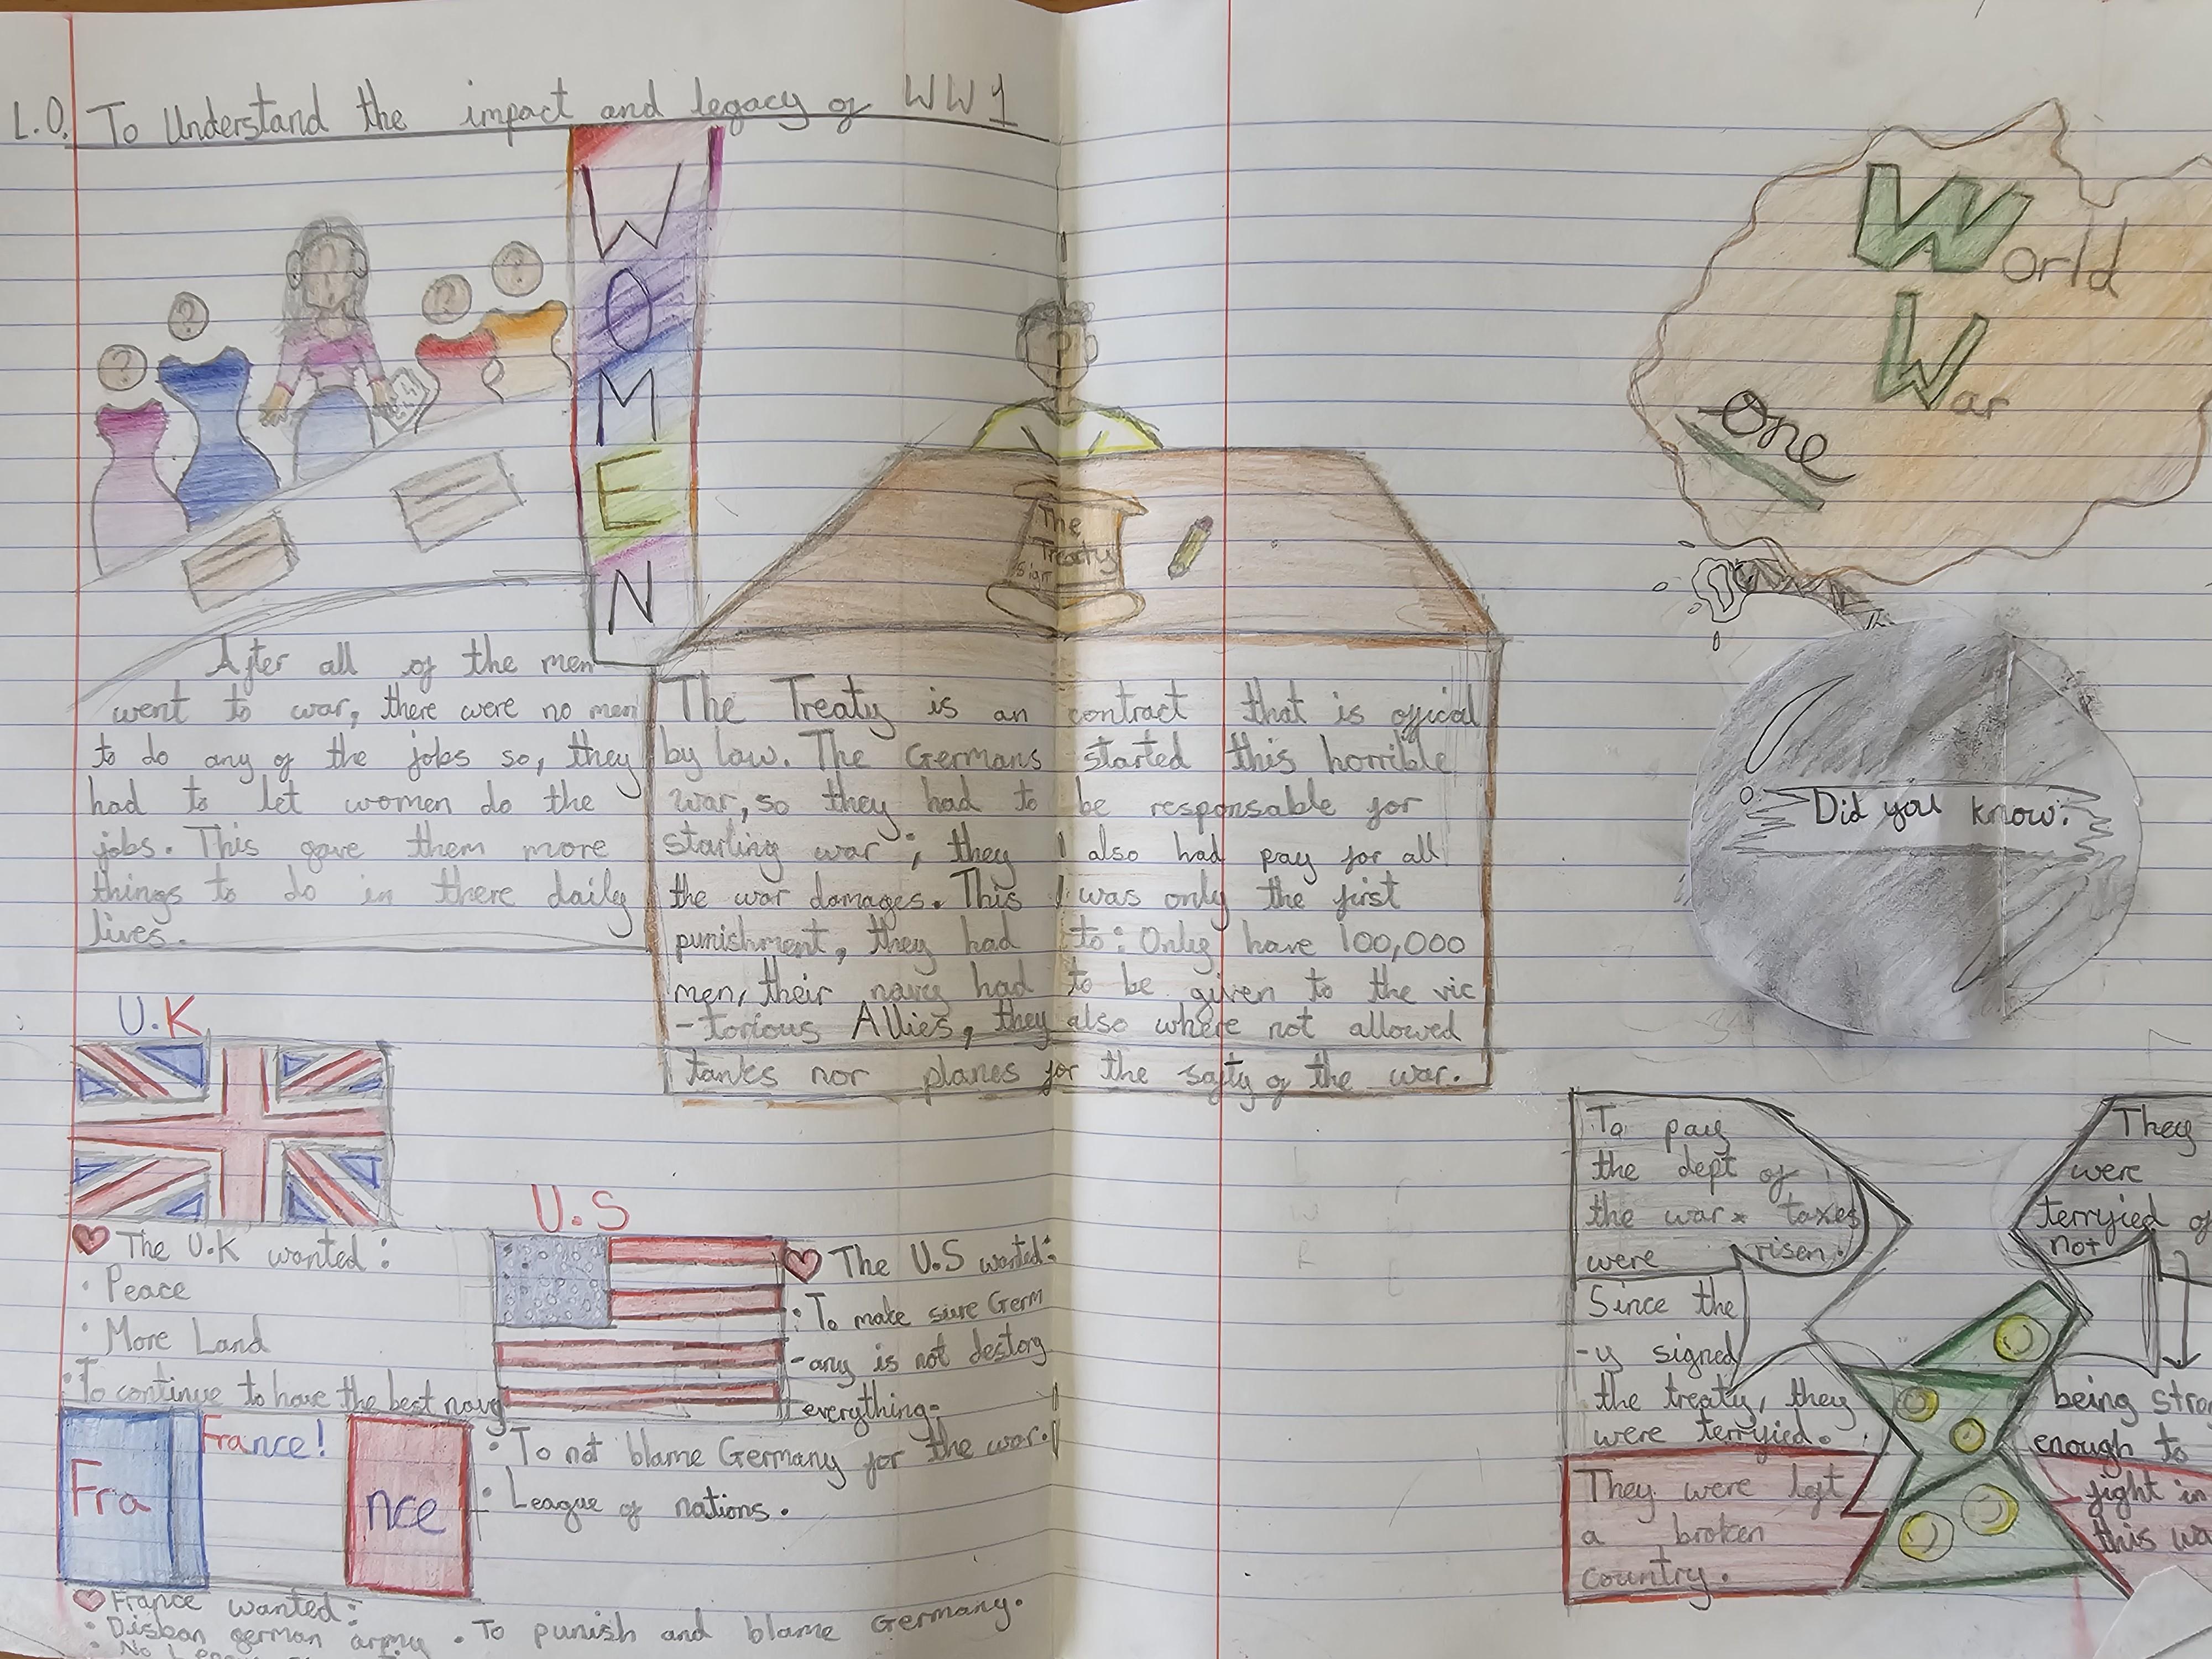 L.O. To Understand the impact and legacy of WW1
WOMEN
After all of the men
went to war, there were no men
to do any of the jobs so, they
had to let women do the
jobs. This gave them more
things to do in there daily
lives.
The
Treaty
sign
The Treaty is an contract that is offical
by law. The Germans started this horrible
war, so they had to be responsable for
starting war; they also had pay for all
the war damages. This was only the first
punishment, they had to: Only have 100,000
men, their navy had to be given to the vic
-torious Allies, they also where not allowed
tanks nor planes for the safty of the war.
World
War
One
Did you know:
U.K
The U.K wanted:
• Peace
• More Land
• To continue to have the best navy
U.S
The U.S wanted:
• To make sure Germ
-any is not destory
everything.
• To not blame Germany for the war.
• League of nations.
France!
Fra
nce
France wanted:
• Disban german army • To punish and blame Germany.
• No
To pay
the dept of
the war taxes
were risen.
Since the
-y signed
the treaty, they
were terryied.
They were left
a broken
country.
They
were
terryied of
not
being stron
enough to
fight in
this wa